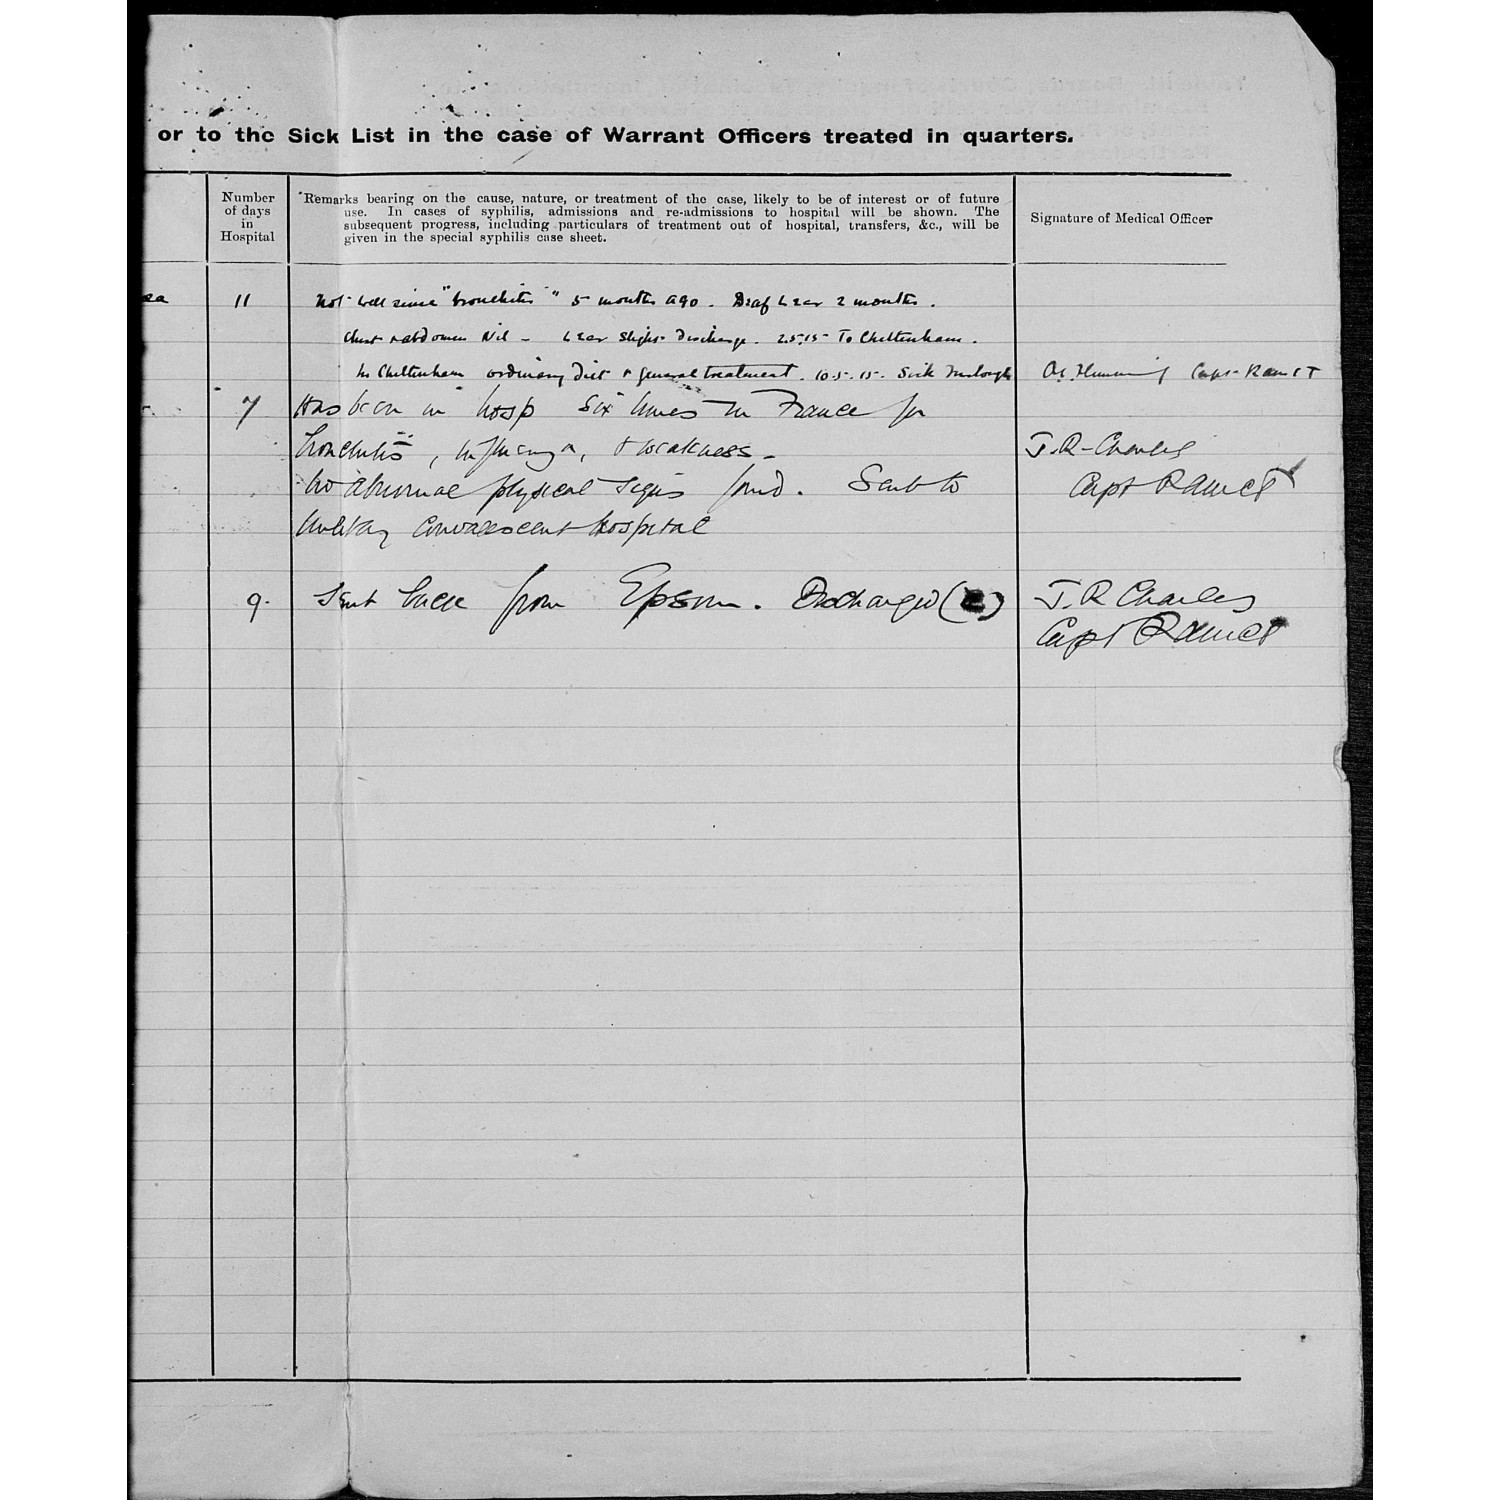 or to the Sick List in the case of Warrant Officers treated in quarters.
Number
of days
in
Hospital
Remarks bearing on the cause, nature, or treatment of the case, likely to be of interest or of future
use. In cases of syphilis, admissions and re-admissions to hospital will be shown. The
subsequent progress, including particulars of treatment out of hospital, transfers, &c., will be
given in the special syphilis case sheet.
Signature of Medical Officer
11
Not well since "bronchitis" 5 months ago. Deaf L ear 2 months.
Chest & abdomen Nil - L ear slight discharge. 2.5.15 To Cheltenham.
In Cheltenham ordinary diet & general treatment. 10.5.15. Sick furlough
Capt RAMCT
7
Has been in hosp six times in France for
bronchitis, influenza, & weakness -
No abnormal physical signs found. Sent to
Military Convalescent Hospital
J.R. Charles
Capt RAMCT
9.
Sent back from Epsom. Discharged
J.R Charles
Capt RAMCT